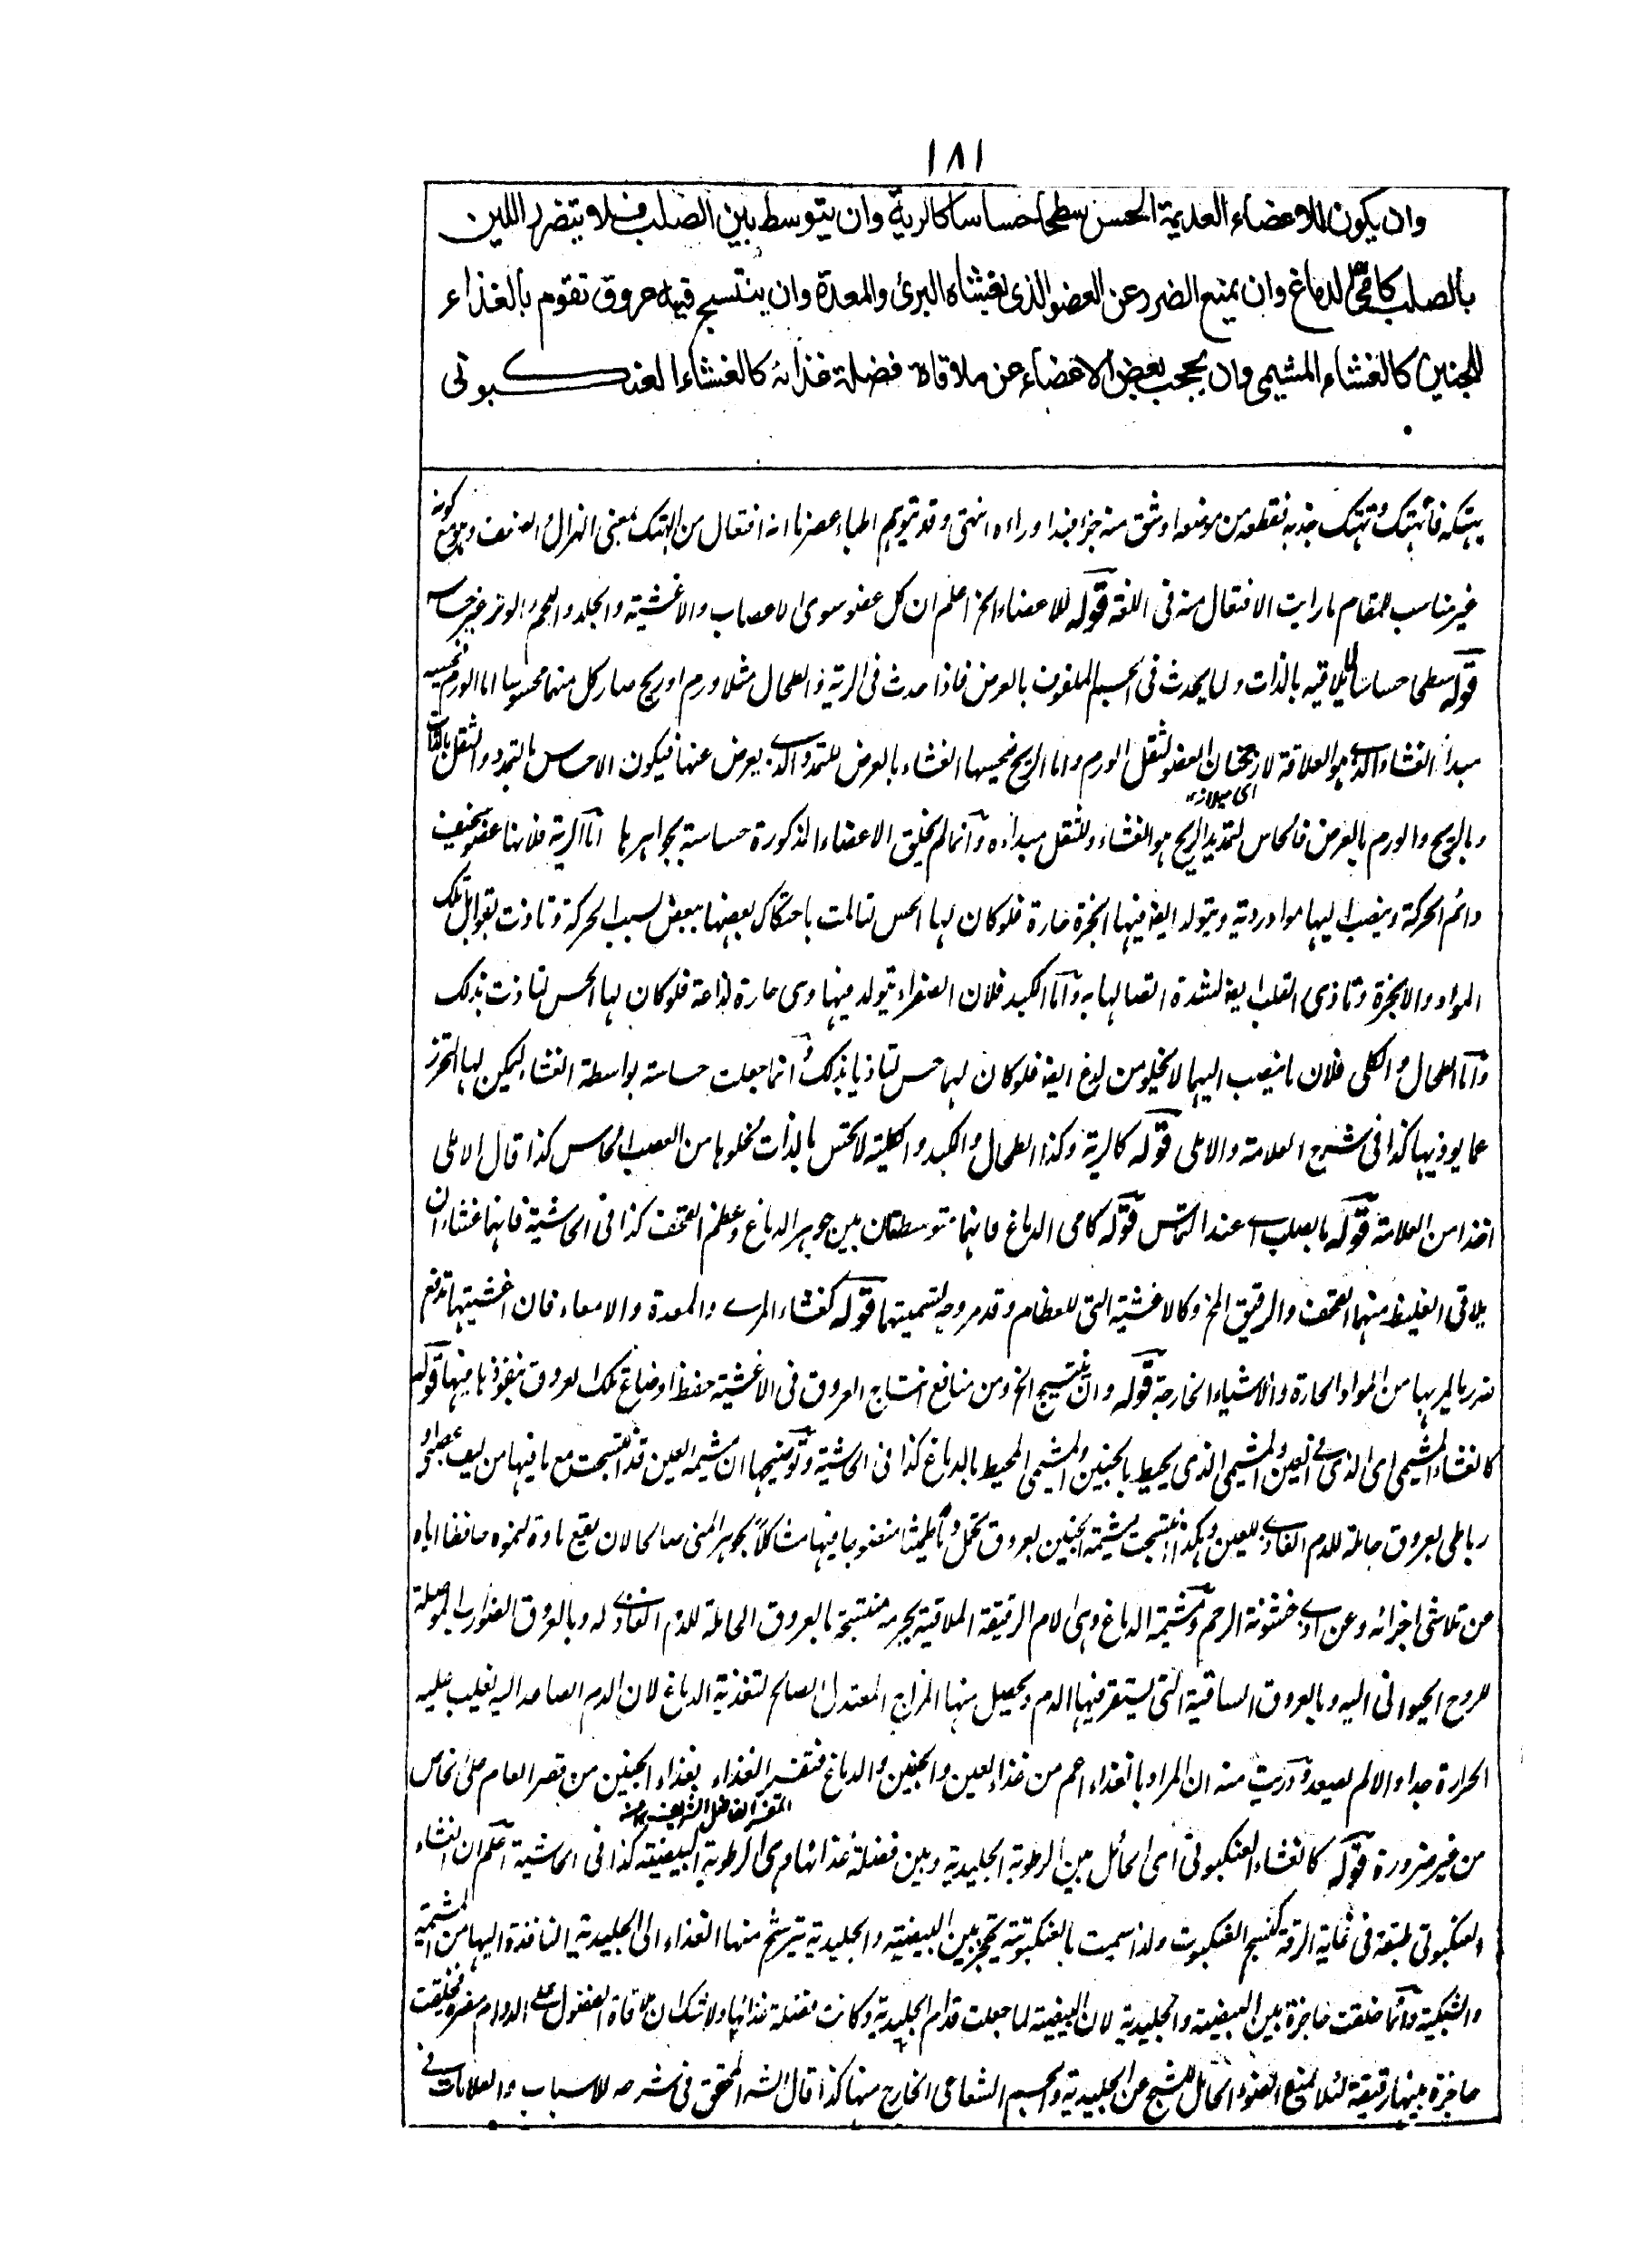 ١٨١
وان يكون للاعضاء العديمة الحسن سطحا حساسا كالرية وان يتوسط بين الصلب فلا يتضرر اللين
بالصلب كامّي الدماغ وان يمنع الضرر عن العضو الذى يغشاه البرئ والمعدة وان ينتسج فيه عروق تقوم بالغذاء
للجنين كالغشاء المشيمى وان يحجب بعض الاعضاء عن ملاقاة فضلة غذائه كالغشاء العنكبوتى
يهتكه فانهتك وتهتك جذبه فقطعه من موضعه او شق منه جزا فبدا وراءه انتهى وقد توهم اطباء عصرنا انه افتعال من الهتك بمعنى الهزال والضعف وهو مع كونه
غير مناسب للمقام ما رايت الافتعال منه فى اللغة قوله للاعضاء الخ اعلم ان كل عضو سوى الاعصاب والاغشية والجلد واللحم والوتر غير حساس
قوله سطحا حساسا لما يلاقيه بالذات ولما يحدث فى الجسم الملفوف بالعرض فاذا حدث فى الرية والطحال مثلا ورم او ريح صار كل منهما محسوسا اما الورم فيحسه
مبدأ الغشاء الذى هو العلاقة لارجحنان العضو لثقل الورم واما الريح فيحسها الغشاء بالعرض للتمدد الذى يعرض عنها فيكون الاحساس بالتمدد والثقل بالذات
اى ميلانه
وبالريح والورم بالعرض فالحاس لتمديد الريح هو الغشاء ولثقل مبدأه وانما لم يخلق الاعضاء المذكورة حساسة بجواهرها اما الرية فلانها عضو سخيف
دائم الحركة وينصب اليها مواد ردية ويتولد ايضا فيها ابخرة حارة فلو كان لها الحس لتالمت باحتكاك بعضها ببعض لسبب الحركة وتاذت بقوابل تلك
المواد والابخرة وتاذى القلب ايضا لشدة اتصالها به واما الكبد فلان الصفراء يتولد فيها وهى حارة لذاعة فلو كان لها الحس لتاذت بذلك
واما الطحال والكلى فلان ما ينصب اليهما لا يخلو من لدغ ايضا فلو كان لهما حس لتاذيا بذلك وانما جعلت حساسة بواسطة الغشاء ليمكن لها التحرز
عما يوذيها كذا فى شرح العلامة والاملى قوله كالرية وكذا الطحال والكبد والكلية لا تحس بالذات لخلوها من العصب الحاس كذا قال الاملى
اخذا من العلامة قوله بالصلب عند التماس قوله كامى الدماغ فانهما متوسطتان بين جوهر الدماغ وعظم القحف كذا فى الحاشية فانهما غشاءان
يلاقى الغليظ منهما القحف والرقيق المخ وكالاغشية التى للعظام وقد مر وجه تسميتهما قوله كغشاء المرى والمعدة والامعاء فان اغشيتها تدفع
ضرر ما يمر بها من المواد الحارة والاشياء الخارجة قوله وان ينتسج الخ ومن منافع انتساج العروق فى الاغشية حفظ اوضاع تلك العروق بنفوذها فيها قوله
كالغشاء المشيمى اى الذى فى العين والمشيمى الذى يحيط بالجنين والمشيمى المحيط بالدماغ كذا فى الحاشية وتوضيحها ان مشيمة العين قد انتسجت مع ما فيها من ليف عصبى او
رباطى بعروق حاملة للدم الغاذى للعين وهكذا انتسجت مشيمة الجنين بعروق تحمل دما طمثيا منصوبا فيها مشاكلا بجوهر المنى صالحا لان يقع مادة لنموه حافظا اياه
من تلاشى اجزائه وعن اذى خشونة الرحم ومشيمة الدماغ وهى الام الرقيقة الملاقية بجرمه منتسجة بالعروق الحاملة للدم الغاذى له وبالعروق الضوارب الموصلة
للروح الحيوانى اليه وبالعروق الساقية التى يستقر فيها الدم ويحصل منها المزاج المعتدل الصالح لتغذية الدماغ لان الدم الصاعد اليه يغلب عليه
الحرارة جدا والا لم يصعد ودريت منه ان المراد بالغذاء اعم من غذاء العين والجنين والدماغ فتفسير الغذاء بغذاء الجنين من قصر العام على الخاص
المفسر الفاضل الشريف منه
من غير ضرورة قوله كالغشاء العنكبوتى اى الحائل بين الرطوبة الجليدية وبين فضلة غذائها وهى الرطوبة البيضية كذا فى الحاشية اعلم ان الغشاء
العنكبوتى طبقة فى غاية الرقة كنسج العنكبوت ولذا سميت بالعنكبوتية يحجز بين البيضية والجليدية يترشح منها الغذاء الى الجليدية النافذة اليها من المشيمة
والشبكية وانما خلقت حاجزة بين البيضية والجليدية لان البيضية لما جعلت قدام الجليدية وكانت فضلة غذائها ولا شك ان ملاقاة الفضول على الدوام مضرة فخلقت
حاجزة بينهما رقيقة لئلا يمنع الضوء الحامل للشبح عن الجليدية والجسم الشعاعى الخارج منها كذا قال الشارح المحقق فى شرحه للاسباب والعلامات فى